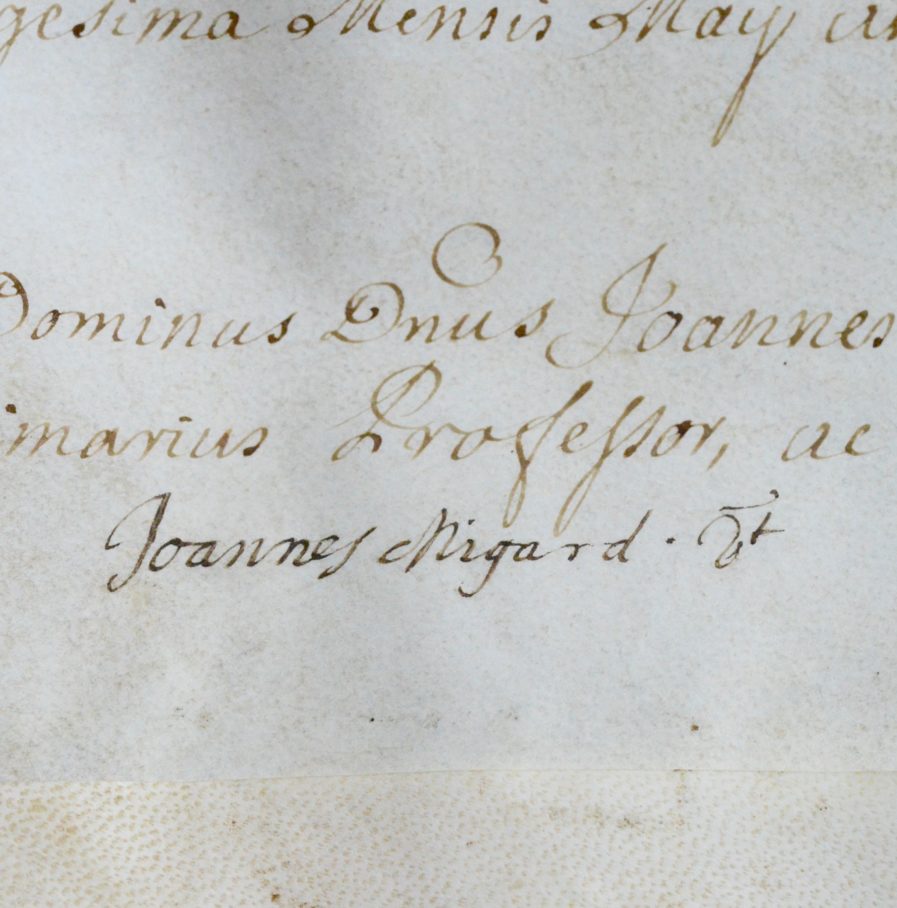 gesima Mensis Maÿ an
Dominus Dnus Joannes
imarius Professor, ac
Joannes Migard.